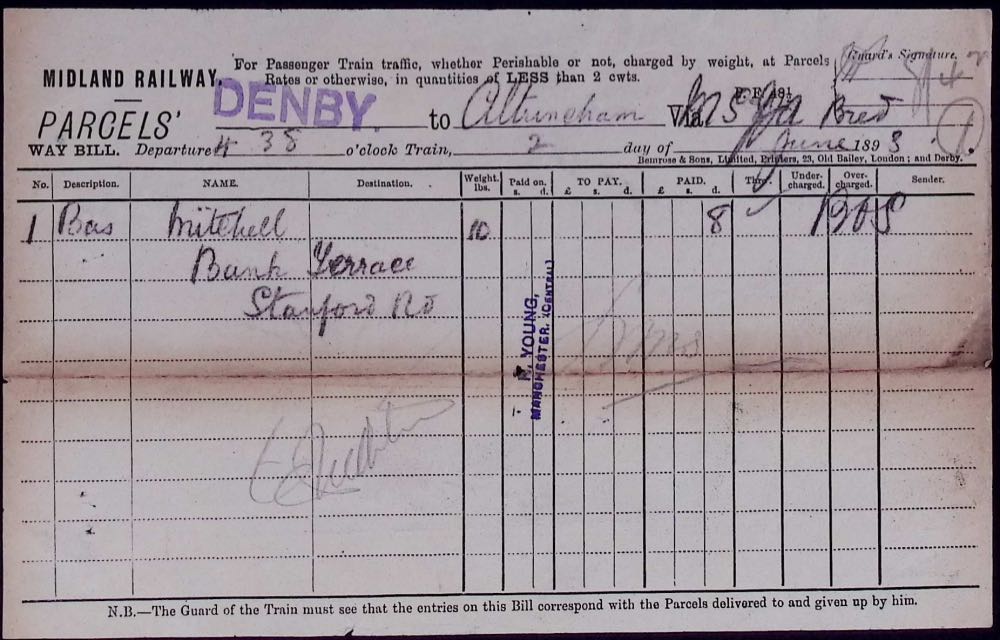 For Passenger Train traffic, whether Perishable or not, charged by weight, at Parcels
Rates or otherwise, in quantities of LESS than 2 cwts.
Guard's Signature.
MIDLAND RAILWAY.
PARCELS'
WAY BILL.
DENBY. to Altrincham Via
Departure 4 38 o'clock Train, 2 day of June 1893
Bemrose & Sons, Limited, Printers, 23, Old Bailey, London; and Derby.
No. Description. NAME. Destination. Weight. lbs. Paid on. s. d. TO PAY. £ s. d. PAID. £ s. d. Thro'. Under-charged. Over-charged. Sender.
1 Bas Mitchell 10 8
Bank Terrace
Stamford Rd
YOUNG,
MANCHESTER. (CENTRAL)
N.B.—The Guard of the Train must see that the entries on this Bill correspond with the Parcels delivered to and given up by him.